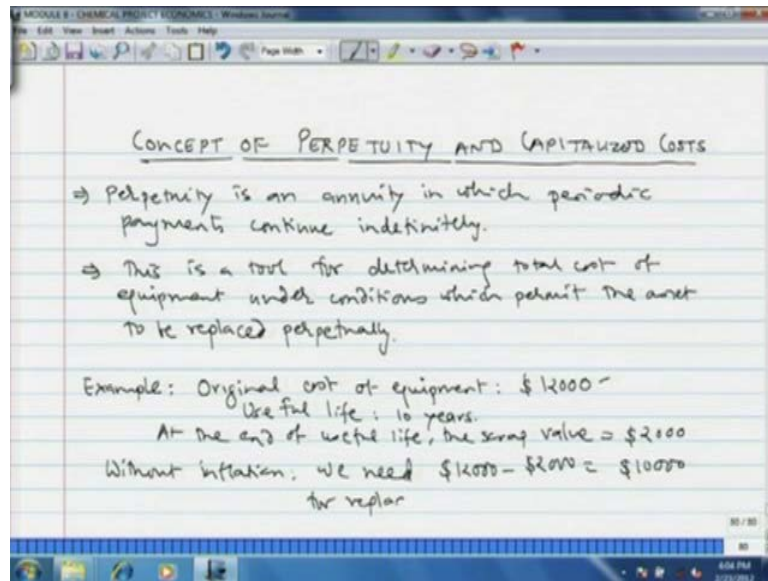 MODULE 8 - CHEMICAL PROJECT ECONOMICS - Windows Journal
File Edit View Insert Actions Tools Help
Page Width
CONCEPT OF PERPETUITY AND CAPITALIZED COSTS
⇒ Perpetuity is an annuity in which periodic
payments continue indefinitely.
⇒ This is a tool for determining total cost of
equipment under conditions which permit the asset
to be replaced perpetually.
Example: Original cost of equipment: $12000 -
Useful life: 10 years.
At the end of useful life, the scrap value = $2000
Without inflation: we need $12000 - $2000 = $10000
for replac
30 / 30
6:04 PM
2/25/2012